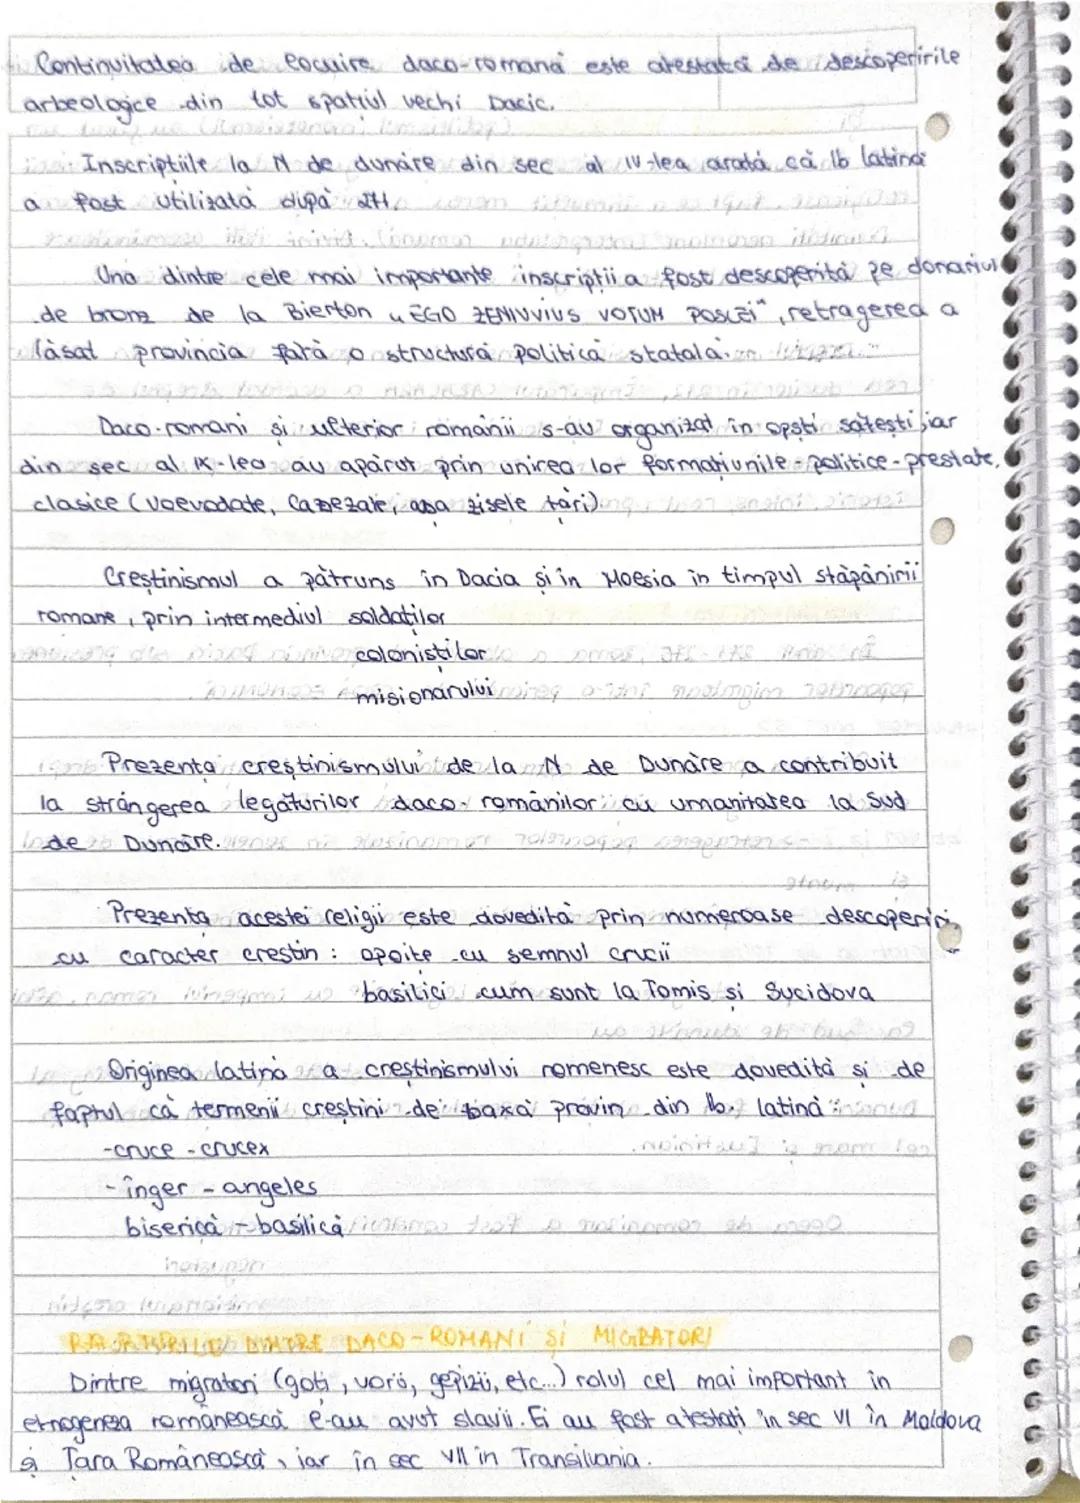 Continuitatea de locuire daco-romană este atestată de descoperirile
arheologice din tot spațiul vechi Dacic.
Inscripțiile la N de dunăre din sec al IV-lea arată că lb latină
a fost utilizată după 271.
Una dintre cele mai importante inscripții a fost descoperită pe donariul
de bronz de la Bierton „EGO ZENIUVIUS VOTUM POSUI", retragerea a
lăsat provincia fără o structură politică statală.
Daco-romani și ulterior românii s-au organizat în opști sătești, iar
din sec al IX-lea au apărut prin unirea lor formațiunile-politice-prestate,
clasice (voevodate, Cnezate, așa zisele țări).
Creștinismul a pătruns în Dacia și în Moesia în timpul stăpânirii
romane, prin intermediul soldaților
coloniștilor
misionarului
Prezența creștinismului de la N de Dunăre a contribuit
la strângerea legăturilor daco-românilor cu umanitatea la Sud
de Dunăre.
Prezența acestei religii este dovedită prin numeroase descoperiri
cu caracter creștin: opoite cu semnul crucii
basilici cum sunt la Tomis și Sucidova
Originea latină a creștinismului romenesc este dovedită și de
faptul că termenii creștini de bază provin din lb. latină:
-cruce - crucex
-înger - angeles
biserică - basilică
RAPORTURILE DINTRE DACO-ROMANI ȘI MIGRATORI
Dintre migratori (goți, vorii, gepizii, etc...) rolul cel mai important în
etnogeneza românească l-au avut slavii. Ei au fost atestați în sec VI în Moldova
și Țara Românească, iar în sec VII în Transilvania.